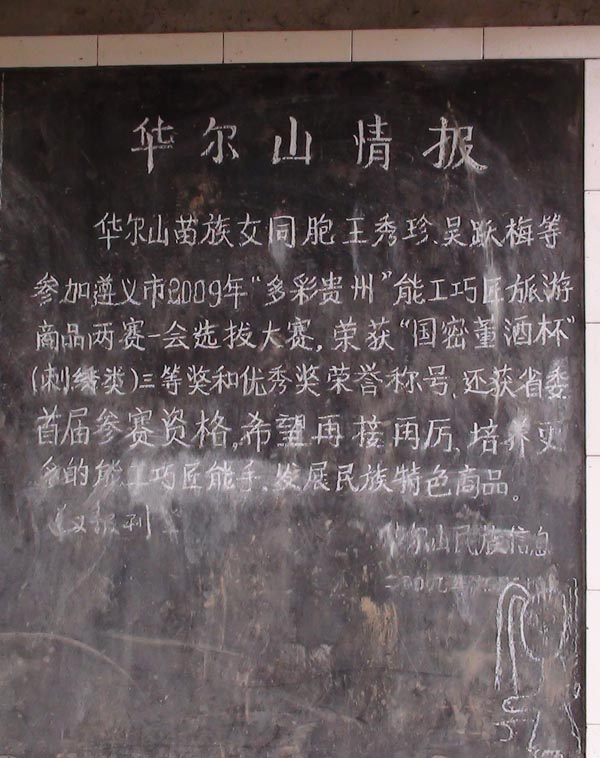 华尔山情报
华尔山苗族女同胞王秀珍、吴跃梅等
参加遵义市2009年“多彩贵州”能工巧匠旅游
商品两赛一会选拔大赛,荣获“国密董酒杯”
(刺绣类)三等奖和优秀奖荣誉称号,还获省委
首届参赛资格。希望再接再厉、培养更
多的能工巧匠能手、发展民族特色商品。
华尔山民族信息